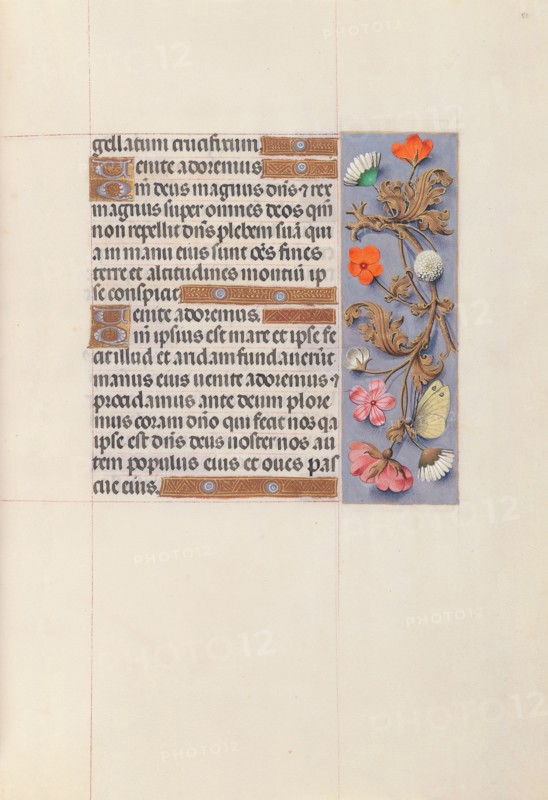 gellatum crucifixum.
Uenite adoremus
Qm̄ deus magnus dn̄s ⁊ rex
magnus super omnes deos qm̄
non repellit dn̄s plebem suā qui
a in manu eius sunt oēs fines
terre et altitudines montiū ip
se conspicit
Uenite adoremus.
Qm̄ ipsius est mare et ipse fe
cit illud et aridam fundauerūt
manus eius uenite adoremus ⁊
procidamus ante deum plore
mus coram dn̄o qui fecit nos qa
ipse est dn̄s deus noster nos au
tem populus eius et oues pas
cue eius.
PHOTO12